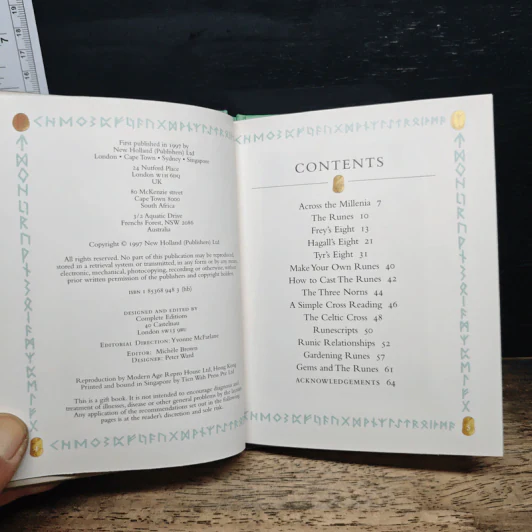 First published in 1997 by
New Holland (Publishers) Ltd
London • Cape Town • Sydney • Singapore
24 Nutford Place
London W1H 6DQ
80 McKenzie street
Cape Town 8000
South Africa
3/2 Aquatic Drive
Frenchs Forest, NSW 2086
Australia
Copyright © 1997 New Holland (Publishers) Ltd
All rights reserved. No part of this publication may be reproduced,
stored in a retrieval system or transmitted, in any form or by any means,
electronic, mechanical, photocopying, recording or otherwise, without
prior written permission of the publishers and copyright holders.
ISBN 1 85368 948 3 (hb)
DESIGNED AND EDITED BY
Complete Editions
40 Castelnau
London SW13 9RU
EDITORIAL DIRECTION: Yvonne McFarlane
EDITOR: Michèle Brown
DESIGNER: Peter Ward
Reproduction by Modern Age Repro House Ltd, Hong Kong
Printed and bound in Singapore by Tien Wah Press Pte Ltd
This is a gift book. It is not intended to encourage diagnosis and
treatment of illnesses, disease or other general problems by the layman.
Any application of the recommendations set out in the following
pages is at the reader's discretion and sole risk.
CONTENTS
Across the Millenia 7
The Runes 10
Frey's Eight 13
Hagall's Eight 21
Tyr's Eight 31
Make Your Own Runes 40
How to Cast The Runes 42
The Three Norns 44
A Simple Cross Reading 46
The Celtic Cross 48
Runescripts 50
Runic Relationships 52
Gardening Runes 57
Gems and The Runes 61
ACKNOWLEDGEMENTS 64